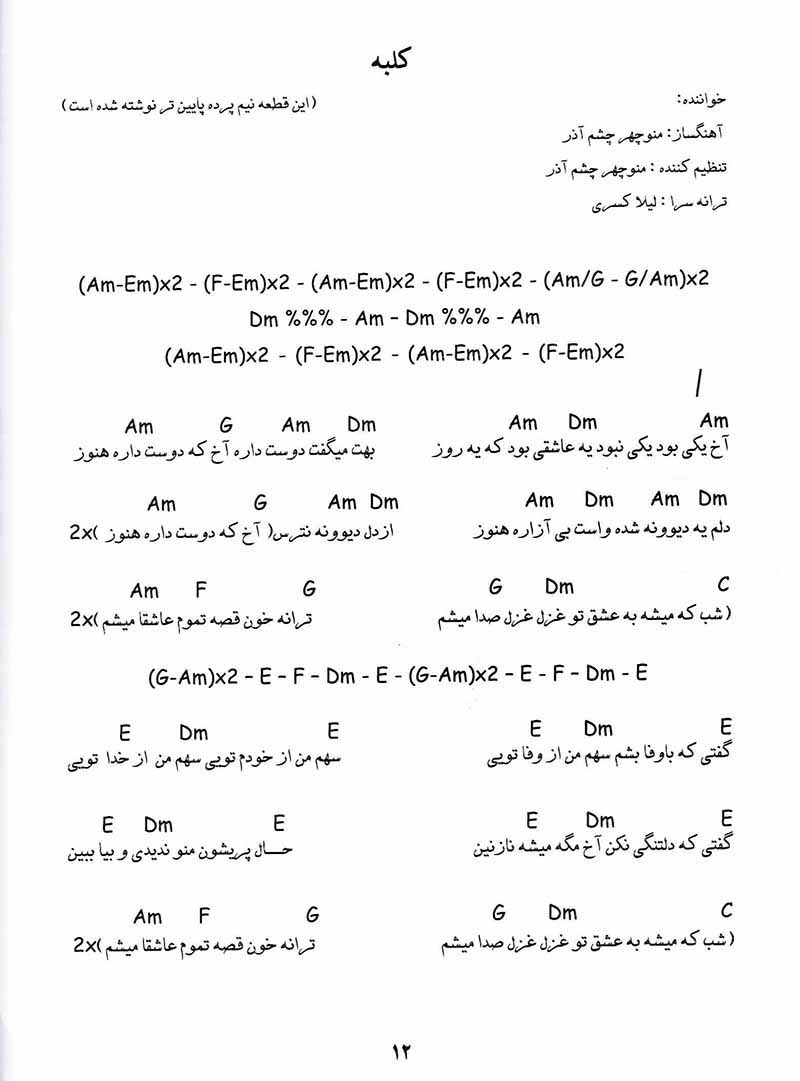 کلبه
خواننده: (این قطعه نیم پرده پایین تر نوشته شده است)
آهنگساز: منوچهر چشم آذر
تنظیم کننده : منوچهر چشم آذر
ترانه سرا : لیلا کسری
(Am-Em)x2 - (F-Em)x2 - (Am-Em)x2 - (F-Em)x2 - (Am/G - G/Am)x2
Dm %%% - Am – Dm %%% - Am
(Am-Em)x2 - (F-Em)x2 - (Am-Em)x2 - (F-Em)x2
Am G Am Dm Am Dm Am
آخ یکی بود یکی نبود یه عاشقی بود که یه روز بهت میگفت دوست داره آخ که دوست داره هنوز
Am G Am Dm Am Dm Am Dm
دلم یه دیوونه شده واست بی آزاره هنوز از دل دیوونه نترس( آخ که دوست داره هنوز )2x
Am F G G Dm C
(شب که میشه به عشق تو غزل غزل صدا میشم ترانه خون قصه تموم عاشقا میشم )2x
(G-Am)x2 – E – F – Dm - E - (G-Am)x2 – E - F – Dm - E
E Dm E E Dm E
گفتی که باوفا بشم سهم من از وفا تویی سهم من از خودم تویی سهم من از خدا تویی
E Dm E E Dm E
گفتی که دلتنگی نکن آخ مگه میشه نازنین حـــال پریشون منو ندیدی و بیا ببین
Am F G G Dm C
(شب که میشه به عشق تو غزل غزل صدا میشم ترانه خون قصه تموم عاشقا میشم )2x
۱۲